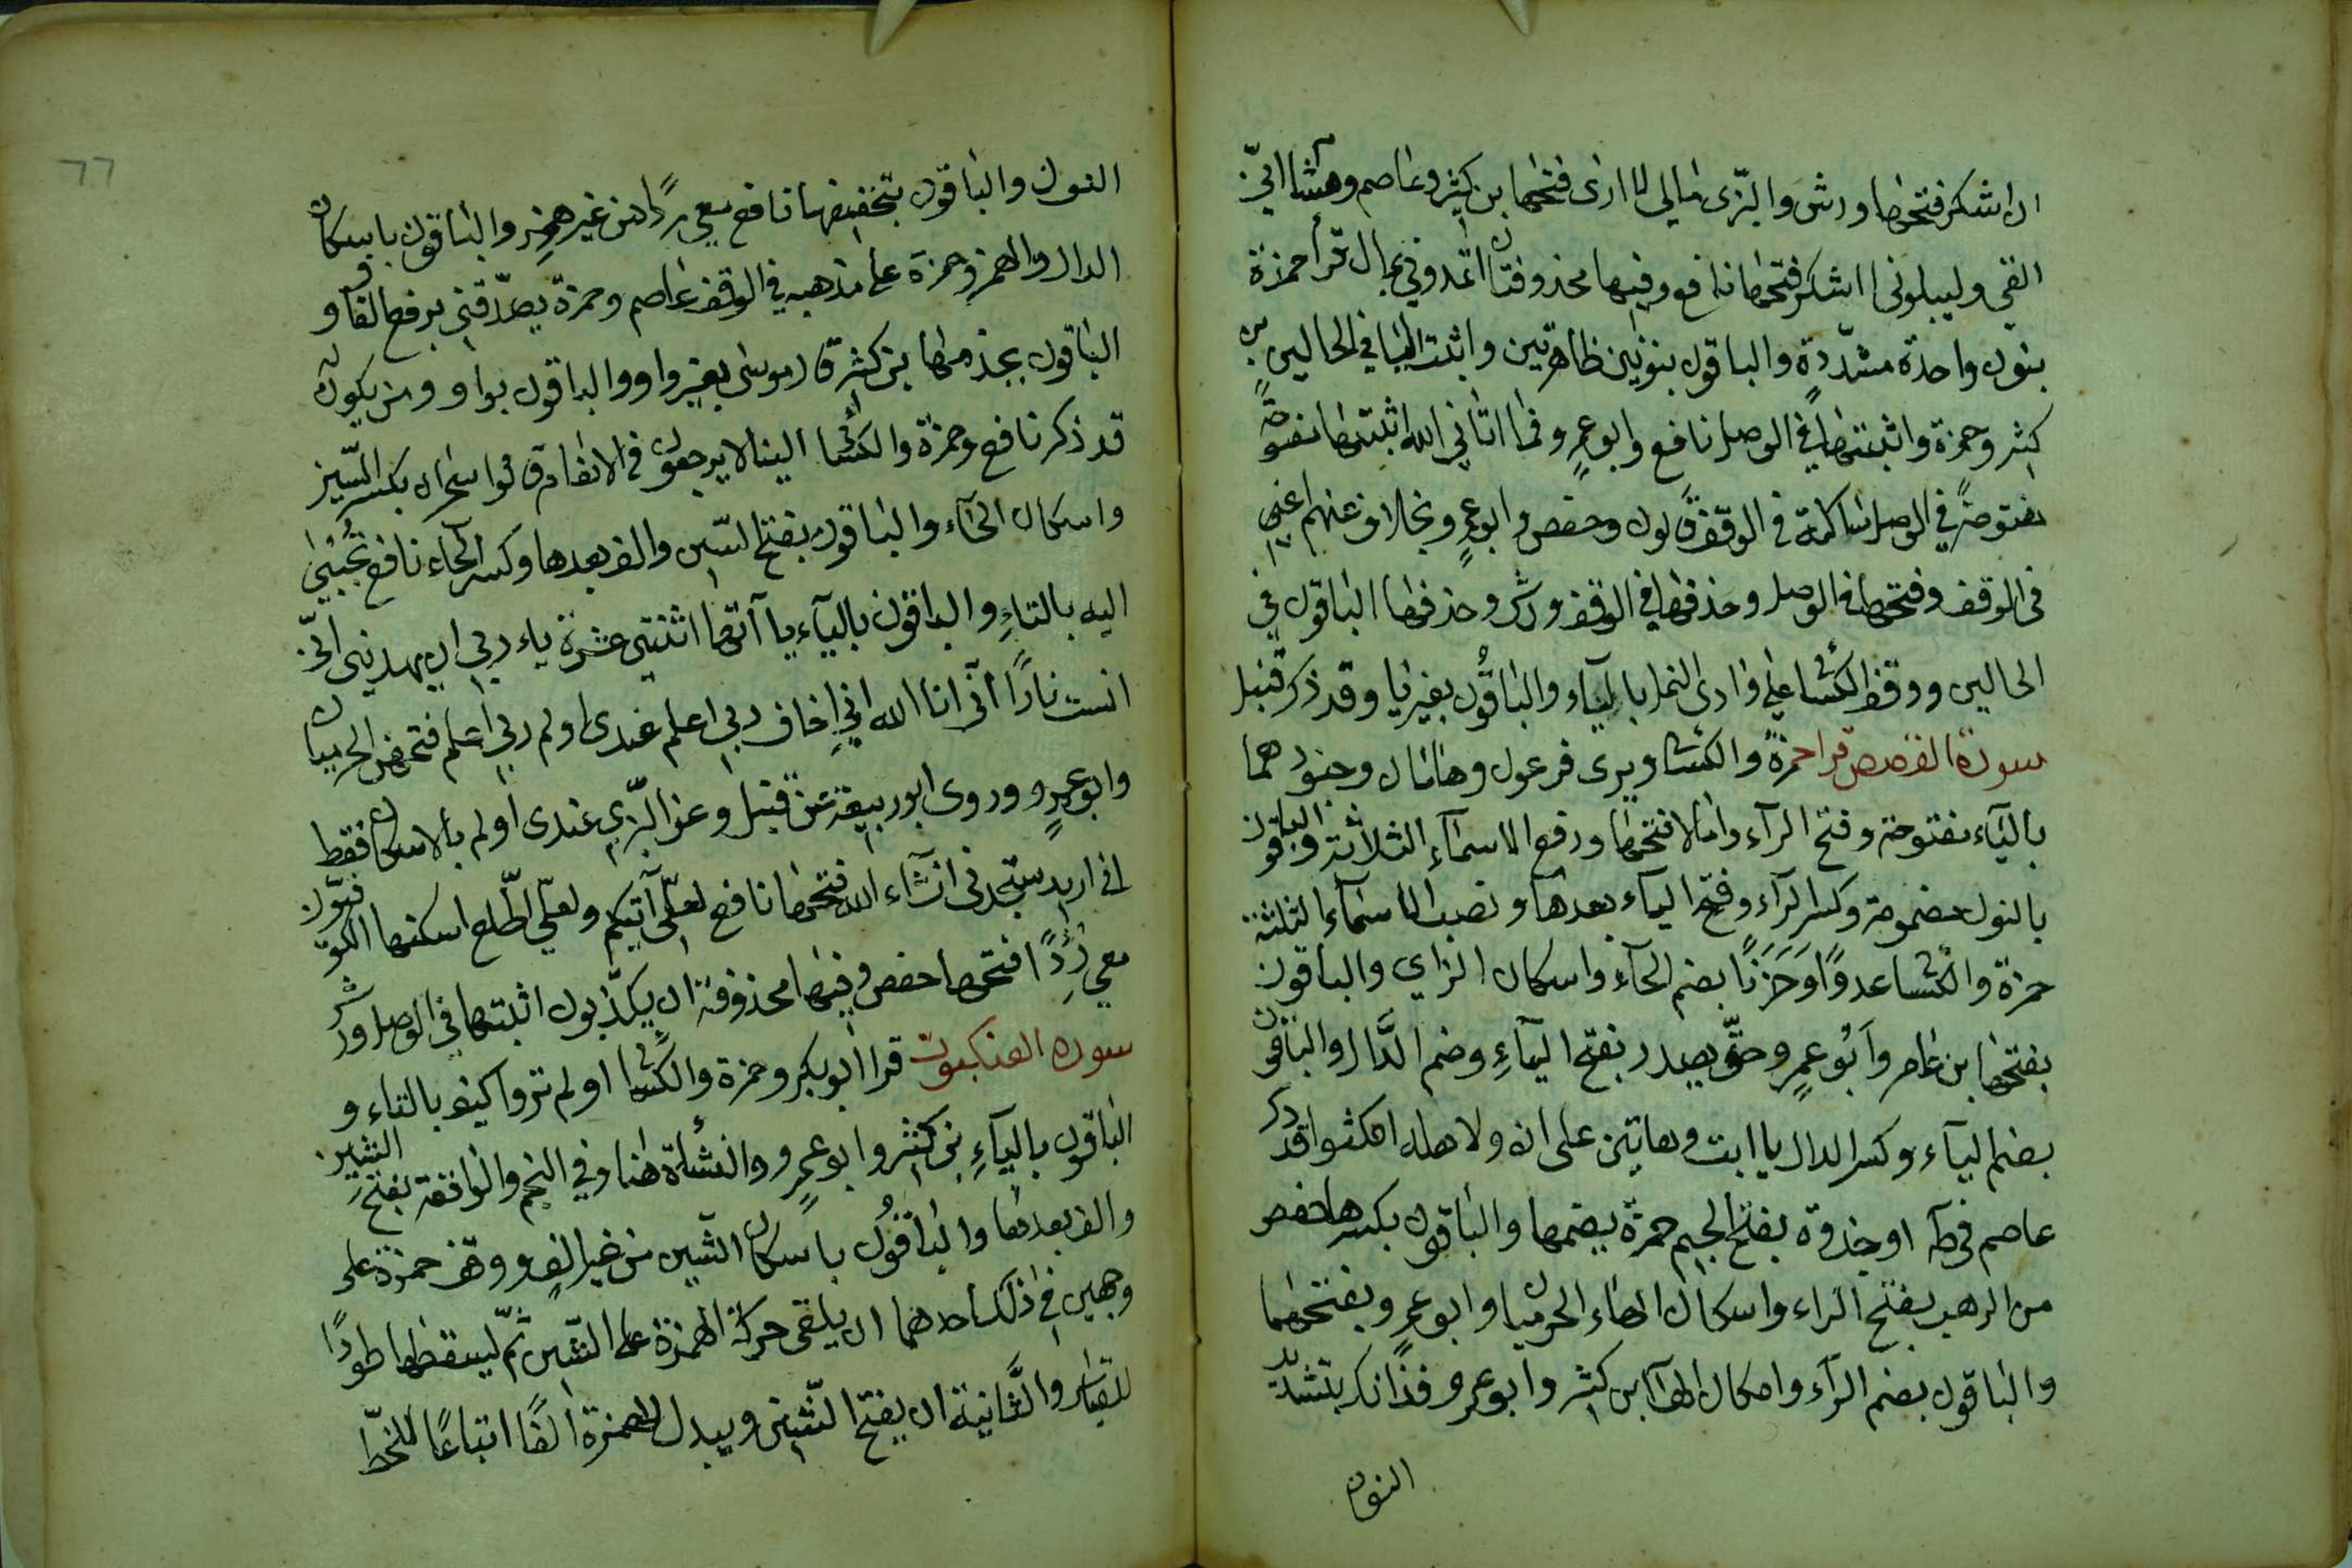 ان اشكر فتحها ورش والبزى مالي لا ارى فتحها بن كثير وعاصم وهشا انيّ
القي وليبلونى ااشكر فتحها نافع وفيها محذوفتان اتمدونى بمال قرأ حمزة
بنون واحدة مشدّدة والباقون بنونين ظاهرتين واثبت اليا في الحالين بن
كثير وحمزة واثبتها في الوصل نافع وابو عمرٍو فما اتاني الله اثبتها مفتوحةً
مفتوحةً في الوصل ساكنة في الوقف قالون وحفص وابو عمرٍو بخلاف عنهم اعني
في الوقف وفتحها في الوصل وحذفها في الوقف ورش وحذفها الباقون في
الحالين ووقف الكسائي على وادى النمل بالياء والباقُون بغير يا وقد ذكر قنبل
سورة القصص قرا حمزة والكسائي ويرى فرعون وهامان وجنودهما
بالياء مفتوحة وفتح الرآء وامالا فتحها ورفع الاسمآء الثلاثة والباقون
بالنون مضمومة وكسر الرآء وفتح اليآء بعدها ونصب الاسمآء الثلثة
حمزة والكسائي عدوًّا وَحَزَنًا بضم الحآء واسكان الزاي والباقون
بفتحها بن عامر وابُو عمرٍو حتّى يصدر بفتح اليآءِ وضم الدَّال والباقون
بضم اليآء وكسر الدال يا ابت وهاتين على ان ولاهله امكثوا قد ذكر
عاصم في طه او جذوة بفتح الجيم حمزة بضمها والباقون بكسرها حفص
من الرهب بفتح الراء واسكان الهاء الحرميان وابو عمرٍو بفتحهما
والباقون بضم الرآء واسكان الهآ ابن كثير وابو عمرو فذانك بتشديد
النون
٦٦
النون والباقون بتخفيفها نافع معي ردًا من غير همزٍ والباقون باسكان
الدال والهمز وحمزة على مذهبه في الوقف عاصم وحمزة يصدّقنى برفع القاف و
الباقون بجزمها بن كثير قال موسى بغير واو والباقون بواو ومن يكون
قد ذكر نافع وحمزة والكسائي الينا لا يرجعون في الانعام ق قالوا سحران بكسر السّين
واسكان الحآء والباقون بفتح السّين والف بعدها وكسر الحآء نافع تُجبٰى
اليه بالتاءِ والباقون باليآء يا آتها اثنتي عشرة ياء ربي ان يهدينى انّي
انست نارًا انّى انا الله اني اخاف ربي اعلم عندى اولم ربي اعلم فتحهن الحرميان
وابو عمرٍو وروى ابو ربيعة عن قنبل وعن البزّي عندى اولم بالاسكان فقط
انى اريد ستجدنى ان شآء الله فتحها نافع لعلّى آتيكم ولعلّي اطّلع اسكنها الكوفيّون
معي رِدًا فتحها حفص وفيها محذوفة ان يكذّبون اثبتها في الوصل ورش
سورة العنكبوت قرا ابو بكر وحمزة والكسائي اولم تروا كيف بالتاء و
الباقون باليآءِ بن كثير وابو عمرٍو والنشأة هنا وفي النجم والواقعة بفتح الشين
والف بعدها والباقُون باسكان الشّين من غير الفٍ ووقف حمزة على
وجهين في ذلك احدهما ان يلقى حركة الهمزة على الشّين ثمّ يسقطها طردًا
للقياس والثَّانية ان يفتح الشّين ويبدل الهمزة الفًا اتباعًا للخطّ